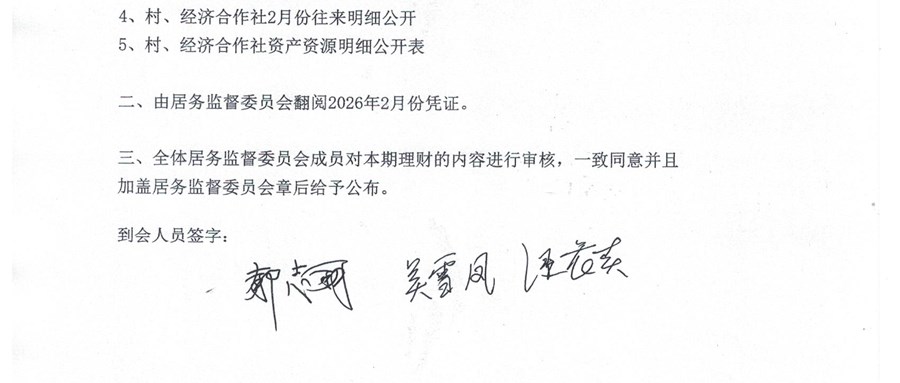 4、村、经济合作社2月份往来明细公开
5、村、经济合作社资产资源明细公开表
二、由居务监督委员会翻阅2026年2月份凭证。
三、全体居务监督委员会成员对本期理财的内容进行审核，一致同意并且
加盖居务监督委员会章后给予公布。
到会人员签字：
吴雪凤